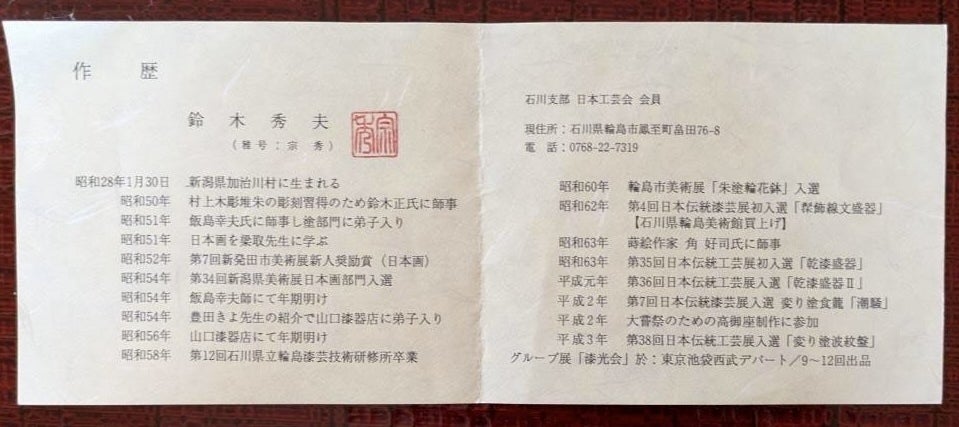 作 歴
鈴木秀夫
(雅号:宗秀)
宗秀
昭和28年1月30日 新潟県加治川村に生まれる
昭和50年 村上木彫堆朱の彫刻習得のため鈴木正氏に師事
昭和51年 飯島幸夫氏に師事し塗部門に弟子入り
昭和51年 日本画を梁取先生に学ぶ
昭和52年 第7回新発田市美術展新人奨励賞(日本画)
昭和54年 第34回新潟県美術展日本画部門入選
昭和54年 飯島幸夫師にて年期明け
昭和54年 豊田きよ先生の紹介で山口漆器店に弟子入り
昭和56年 山口漆器店にて年期明け
昭和58年 第12回石川県立輪島漆芸技術研修所卒業
石川支部 日本工芸会 会員
現住所:石川県輪島市鳳至町畠田76-8
電 話:0768-22-7319
昭和60年 輪島市美術展「朱塗輪花鉢」入選
昭和62年 第4回日本伝統漆芸展初入選「髹飾線文盛器」
【石川県輪島美術館買上げ】
昭和63年 蒔絵作家 角 好司氏に師事
昭和63年 第35回日本伝統工芸展初入選「乾漆盛器」
平成元年 第36回日本伝統工芸展入選「乾漆盛器Ⅱ」
平成2年 第7回日本伝統漆芸展入選 変り塗食籠「潮騒」
平成2年 大嘗祭のための高御座制作に参加
平成3年 第38回日本伝統工芸展入選「変り塗波紋盤」
グループ展「漆光会」於:東京池袋西武デパート/9〜12回出品